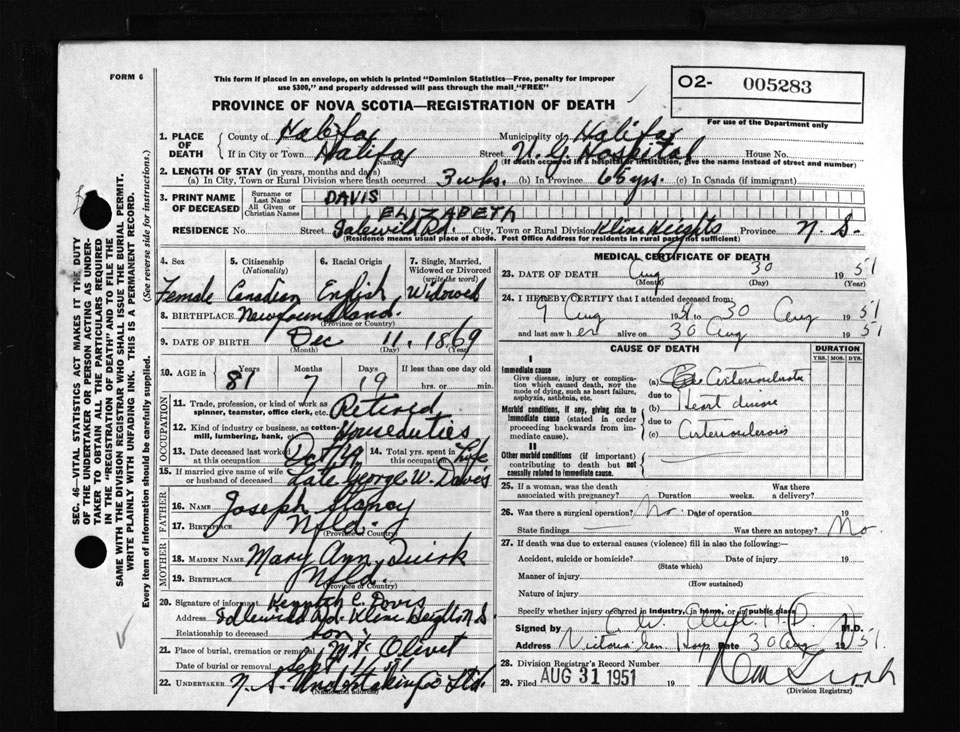 FORM 6
This form if placed in an envelope, on which is printed "Dominion Statistics—Free, penalty for improper
use $300," and properly addressed will pass through the mail "FREE"
O2- 005283
For use of the Department only
PROVINCE OF NOVA SCOTIA—REGISTRATION OF DEATH
1. PLACE OF DEATH
County of Halifax Municipality of Halifax
If in City or Town Halifax Street V. G. Hospital House No.
(Name) (If death occurred in a hospital or institution, give the name instead of street and number)
2. LENGTH OF STAY (in years, months and days)
(a) In City, Town or Rural Division where death occurred 3 wks. (b) In Province 65 yrs. (c) In Canada (if immigrant)
3. PRINT NAME OF DECEASED
Surname or Last Name DAVIS
All Given or Christian Names ELIZABETH
RESIDENCE No. Street Idlewild Rd. City, Town or Rural Division Kline Heights Province N. S.
(Residence means usual place of abode. Post Office Address for residents in rural parts not sufficient)
4. Sex Female
5. Citizenship (Nationality) Canadian
6. Racial Origin English
7. Single, Married, Widowed or Divorced (write the word) Widowed
8. BIRTHPLACE Newfoundland.
(Province or Country)
9. DATE OF BIRTH Dec 11, 1869
(Month) (Day) (Year)
10. AGE in Years Months Days If less than one day old
81 7 19 hrs. or min.
OCCUPATION
11. Trade, profession, or kind of work as spinner, teamster, office clerk, etc. Retired
12. Kind of industry or business, as cotton-mill, lumbering, bank, etc. Houseduties
13. Date deceased last worked at this occupation
14. Total yrs. spent in this occupation Life
15. If married give name of wife or husband of deceased Late George W. Davis
FATHER
16. NAME Joseph
17. BIRTHPLACE Nfld.
(Province or Country)
MOTHER
18. MAIDEN NAME Mary Ann Quirk
19. BIRTHPLACE Nfld.
(Province or Country)
20. Signature of informant Kenneth C. Davis
Address Idlewild Rd. Kline Heights N S
Relationship to deceased Son
21. Place of burial, cremation or removal Mt. Olivet
Date of burial or removal Sept 1, 51
22. UNDERTAKER N. S. Undertaking Co Ltd.
(Name and address)
MEDICAL CERTIFICATE OF DEATH
23. DATE OF DEATH Aug 30 1951
(Month) (Day) (Year)
24. I HEREBY CERTIFY that I attended deceased from:
9 Aug 1951 to 30 Aug 1951
and last saw her alive on 30 Aug 1951
CAUSE OF DEATH
DURATION
YRS. MOS. DYS.
I
Immediate cause
Give disease, injury or complication which caused death, NOT the mode of dying, such as heart failure, asphyxia, asthenia, etc.
(a) Arteriosclerotic
due to
Morbid conditions, if any, giving rise to immediate cause (stated in order proceeding backwards from immediate cause).
(b) Heart disease
due to
(c) Arteriosclerosis
II
Other morbid conditions (if important) contributing to death but not causally related to immediate cause.
25. If a woman, was the death associated with pregnancy? Duration weeks. Was there a delivery?
26. Was there a surgical operation? No. Date of operation 19
State findings Was there an autopsy? No.
27. If death was due to external causes (violence) fill in also the following:—
Accident, suicide or homicide? Date of injury 19
(State which)
Manner of injury
(How sustained)
Nature of injury
Specify whether injury occurred in industry, in home, or in public place
Signed by M.D.
Address Victoria Gen. Hosp. Date 30 Aug 1951
28. Division Registrar's Record Number
29. Filed AUG 31 1951 19
(Division Registrar)
SEC. 46—VITAL STATISTICS ACT MAKES IT THE DUTY
OF THE UNDERTAKER OR PERSON ACTING AS UNDERTAKER TO OBTAIN ALL THE PARTICULARS REQUIRED
IN THE "REGISTRATION OF DEATH" AND TO FILE THE
SAME WITH THE DIVISION REGISTRAR WHO SHALL ISSUE THE BURIAL PERMIT.
WRITE PLAINLY WITH UNFADING INK. THIS IS A PERMANENT RECORD.
Every item of information should be carefully supplied. (See reverse side for instructions.)